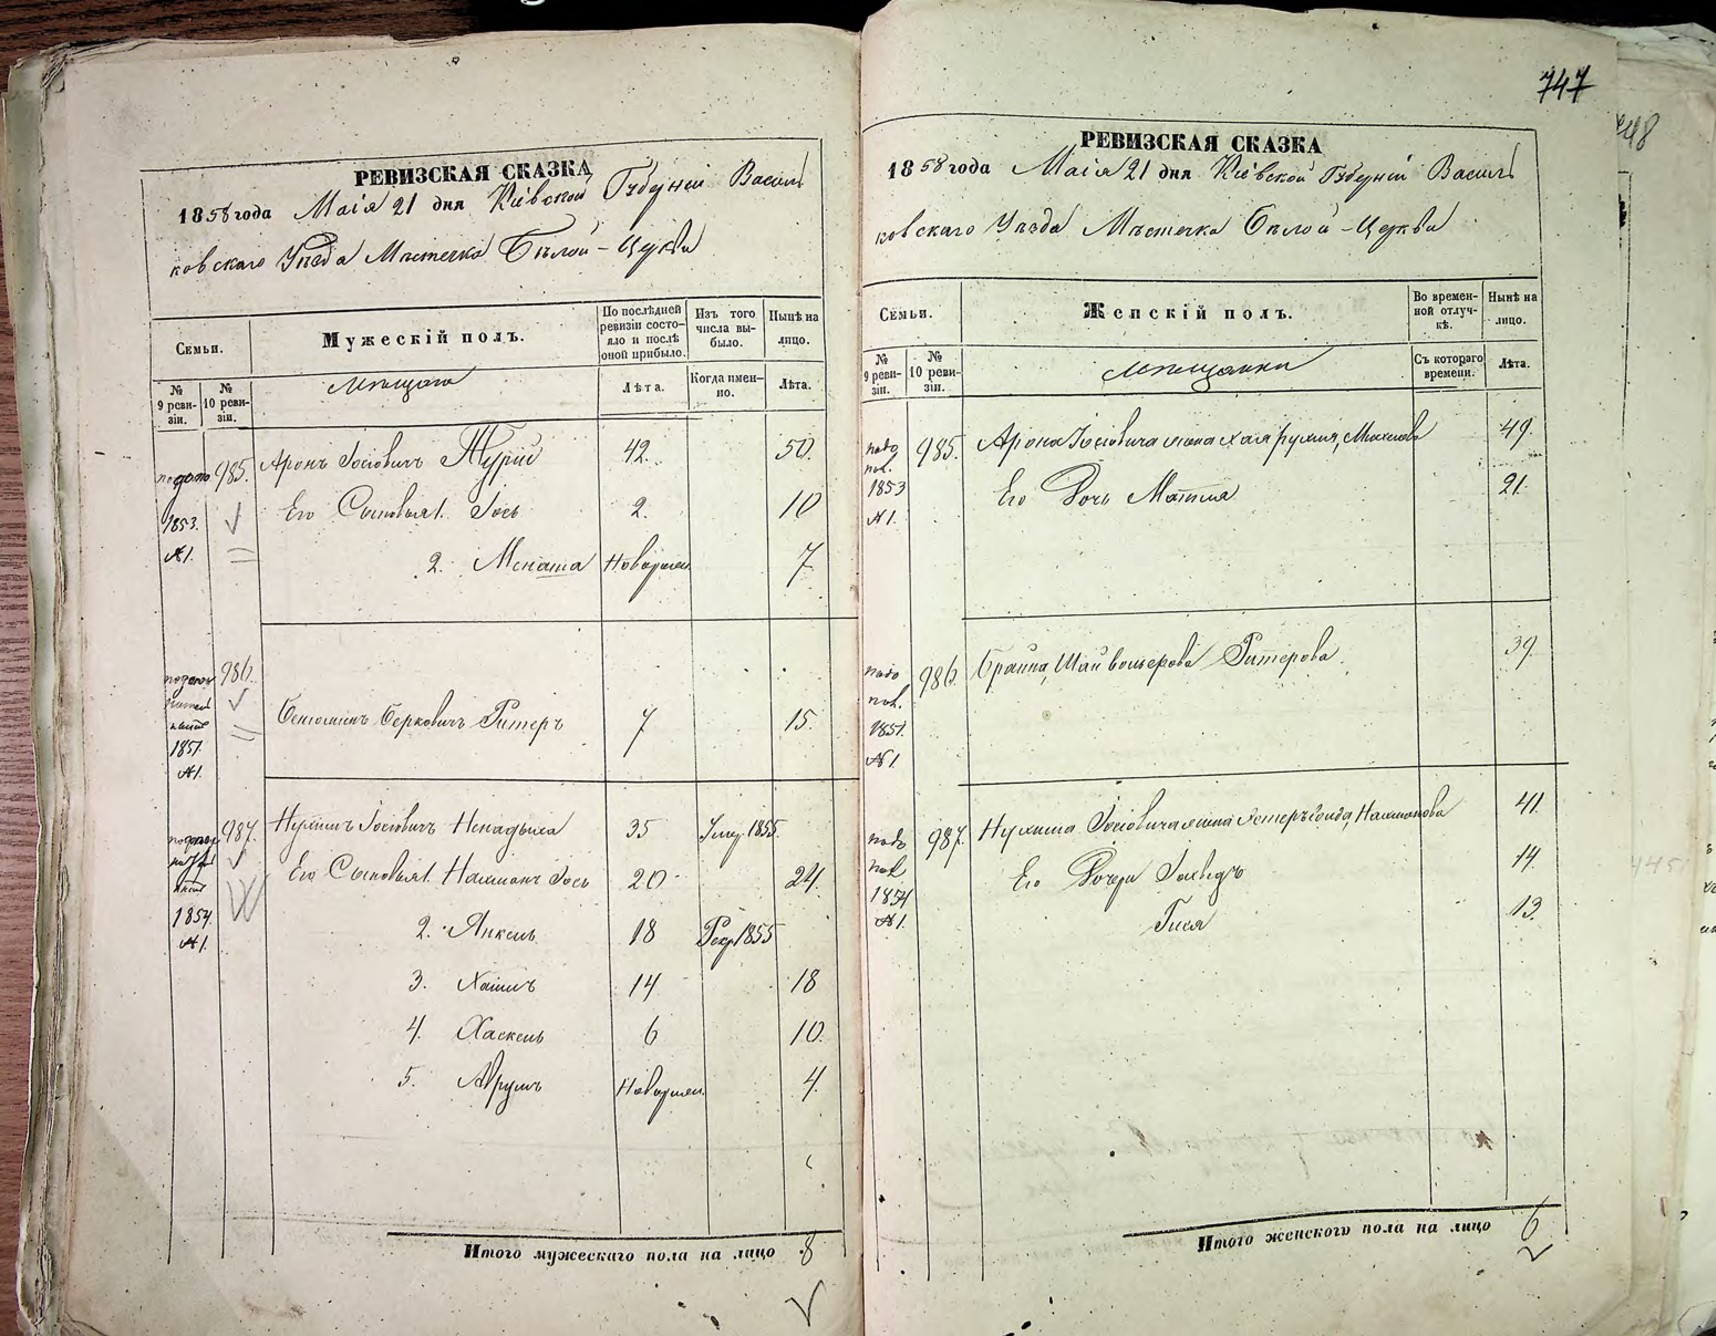 747
48
РЕВИЗСКАЯ СКАЗКА
1858 года Маія 21 дня Кіевской Губерніи Василь
ковскаго Уѣзда Мѣстечка Бѣлой-Церкви
Семьи.
Мужескій полъ.
По послѣдней ревизіи состояло и послѣ оной прибыло.
Изъ того числа выбыло.
Нынѣ на лицо.
№ 9 ревизіи.
№ 10 ревизіи.
Мѣщане
Лѣта.
Когда именно.
Лѣта.
985. Аронъ Іосіовичъ 42. 50.
1853. Его Сыновья 1. Іось 2. 10
№1. 2. Менаша Новорожден 7
986.
Беніоминъ Берковичъ Ритеръ 7 15.
1851.
№1.
987. Нухимъ Іосіовичъ Ненадыха 35 Умер. 1855.
Его Сыновья 1. Нахманъ Іось 20 24.
1854. 2. Янкель 18 Рекр. 1855
№1.
3. Хаимъ 14 18
4. Хаскель 6 10.
5. Абрумъ Новорожден. 4.
Итого мужескаго пола на лицо 8
РЕВИЗСКАЯ СКАЗКА
1858 года Маія 21 дня Кіевской Губерніи Василь
ковскаго Уѣзда Мѣстечка Бѣлой-Церкви
Семьи.
Женскій полъ.
Во временной отлучкѣ.
Нынѣ на лицо.
№ 9 ревизіи.
№ 10 ревизіи.
Мѣщанки
Съ котораго времени.
Лѣта.
985. Арона Іосіовича жена 49.
1853 Его Дочь 21.
№1.
986. Ритерова 39
1851.
№1
987. Нухима Іосіовича жена Нахманова 41.
Его Дочери 14.
1854
№1. Гися 13.
Итого женскаго пола на лицо 6